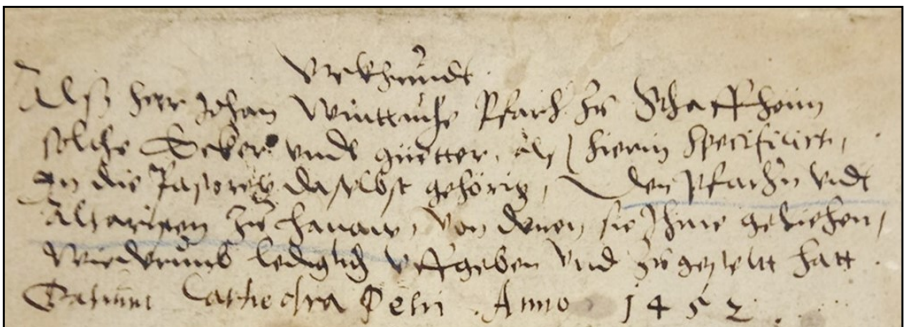 Urkhundt
Alß Herr Johan Wintterkhe Pfarh: zu Schaffheim
solche Ecker vndt guetter, alß hierin specificirt,
An die Pastorey daselbst gehörig, Den Pfarhn vndt
Altaristen zu Hanaw, von denen sie Ihme geliehen,
Wiederumb lediglich vffgeben vnd zugestelt hatt.
Datum Cathedra Petri Anno 1452.